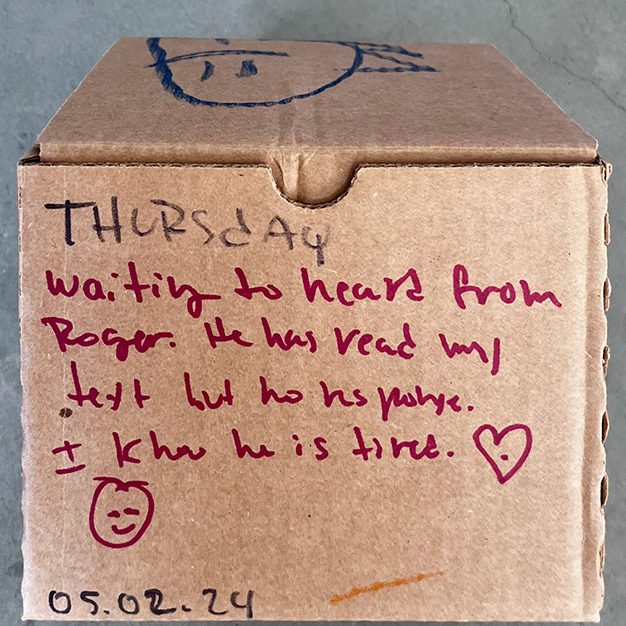 THURSdAy
waiting to heart from
Roger. He has read my
text but no response.
I know he is tired.
05.02.24